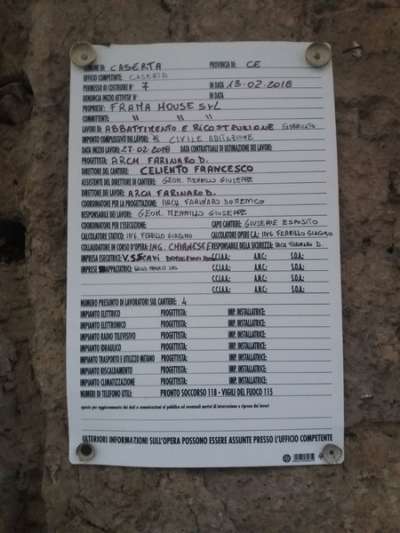 COMUNE DI CASERTA PROVINCIA DI CE
UFFICIO COMPETENTE: CASERTA
PERMESSO DI COSTRUIRE N° 7 IN DATA 13-02-2018
DENUNCIA INIZIO ATTIVITA' N° IN DATA
PROPRIETA': FRAMA HOUSE SRL
COMMITTENTE:
LAVORI DI ABBATTIMENTO E RICOSTRUZIONE
IMPORTO COMPLESSIVO DEI LAVORI: CIVILE ABITAZIONE
DATA INIZIO LAVORI 27 02 2018 DATA CONTRATTUALE DI ULTIMAZIONE DEI LAVORI:
PROGETTISTA: ARCH FARINARO D.
DIRETTORE DEL CANTIERE: CELIENTO FRANCESCO
ASSISTENTE DEL DIRETTORE DI CANTIERE: GEOM. MERRILLO GIUSEPPE
DIRETTORE DEI LAVORI: ARCH FARINARO D.
COORDINATORE PER LA PROGETTAZIONE: ARCH FARINARO DOMENICO
RESPONSABILE DEI LAVORI: GEOM. MERRILLO GIUSEPPE
COORDINATORE PER L'ESECUZIONE: CAPO CANTIERE: GIUSEPPE ESPOSITO
CALCOLATORE STATICO: ING FERAIOLO GIUSEPPE CALCOLATORE OPERE C.A.: ING
COLLAUDATORE IN CORSO D'OPERA: ING. CHIANESE RESPONSABILE DELLA SICUREZZA: ARCH FARINARO D.
IMPRESA ESECUTRICE: V.SCAVI C.C.I.A.A.: A.N.C.: S.O.A.:
IMPRESE SUBAPPALTATRICI: C.C.I.A.A.: A.N.C.: S.O.A.:
C.C.I.A.A.: A.N.C.: S.O.A.:
C.C.I.A.A.: A.N.C.: S.O.A.:
NUMERO PRESUNTO DI LAVORATORI SUL CANTIERE: 4
IMPIANTO ELETTRICO PROGETTISTA: IMP. INSTALLATRICE:
IMPIANTO ELETTRONICO PROGETTISTA: IMP. INSTALLATRICE:
IMPIANTO RADIO TELEVISIVO PROGETTISTA: IMP. INSTALLATRICE:
IMPIANTO IDRAULICO PROGETTISTA: IMP. INSTALLATRICE:
IMPIANTO TRASPORTO E UTILIZZO METANO PROGETTISTA: IMP. INSTALLATRICE:
IMPIANTO RISCALDAMENTO PROGETTISTA: IMP. INSTALLATRICE:
IMPIANTO CLIMATIZZAZIONE PROGETTISTA: IMP. INSTALLATRICE:
NUMERI DI TELEFONO UTILI: PRONTO SOCCORSO 118 - VIGILI DEL FUOCO 115
spazio per aggiornamento dei dati e comunicazioni al pubblico ed eventuali notizie di interruzione e ripresa dei lavori
ULTERIORI INFORMAZIONI SULL'OPERA POSSONO ESSERE ASSUNTE PRESSO L'UFFICIO COMPETENTE